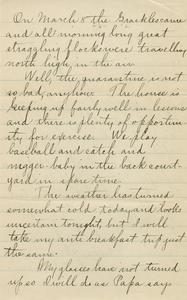 On March 8 the Grackles came
and all morning long great
straggling flocks were travelling
north high in the air.
Well, the quarantine is not
so bad, anyhow. The house is
keeping up fairly well in lessons
and there is plenty of opportun-
ity for exercise. We play
baseball and catch and
nigger baby in the back court-
yard in spare time.
The weather has turned
somewhat cold today and looks
uncertain tonight, but I will
take my anti breakfast trip just
the same.
My glasses have not turned
up so I will do as Papa says